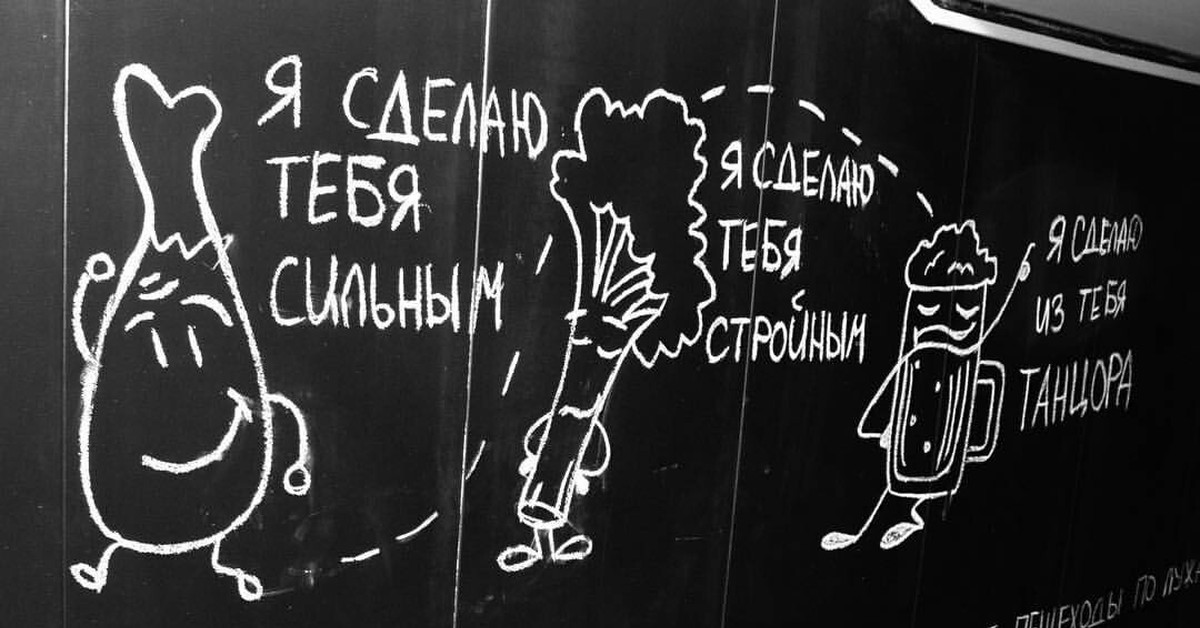 Я СДЕЛАЮ
ТЕБЯ
СИЛЬНЫМ
Я СДЕЛАЮ
ТЕБЯ
СТРОЙНЫМ
Я СДЕЛАЮ
ИЗ ТЕБЯ
ТАНЦОРА
ПЕШЕХОДЫ ПО